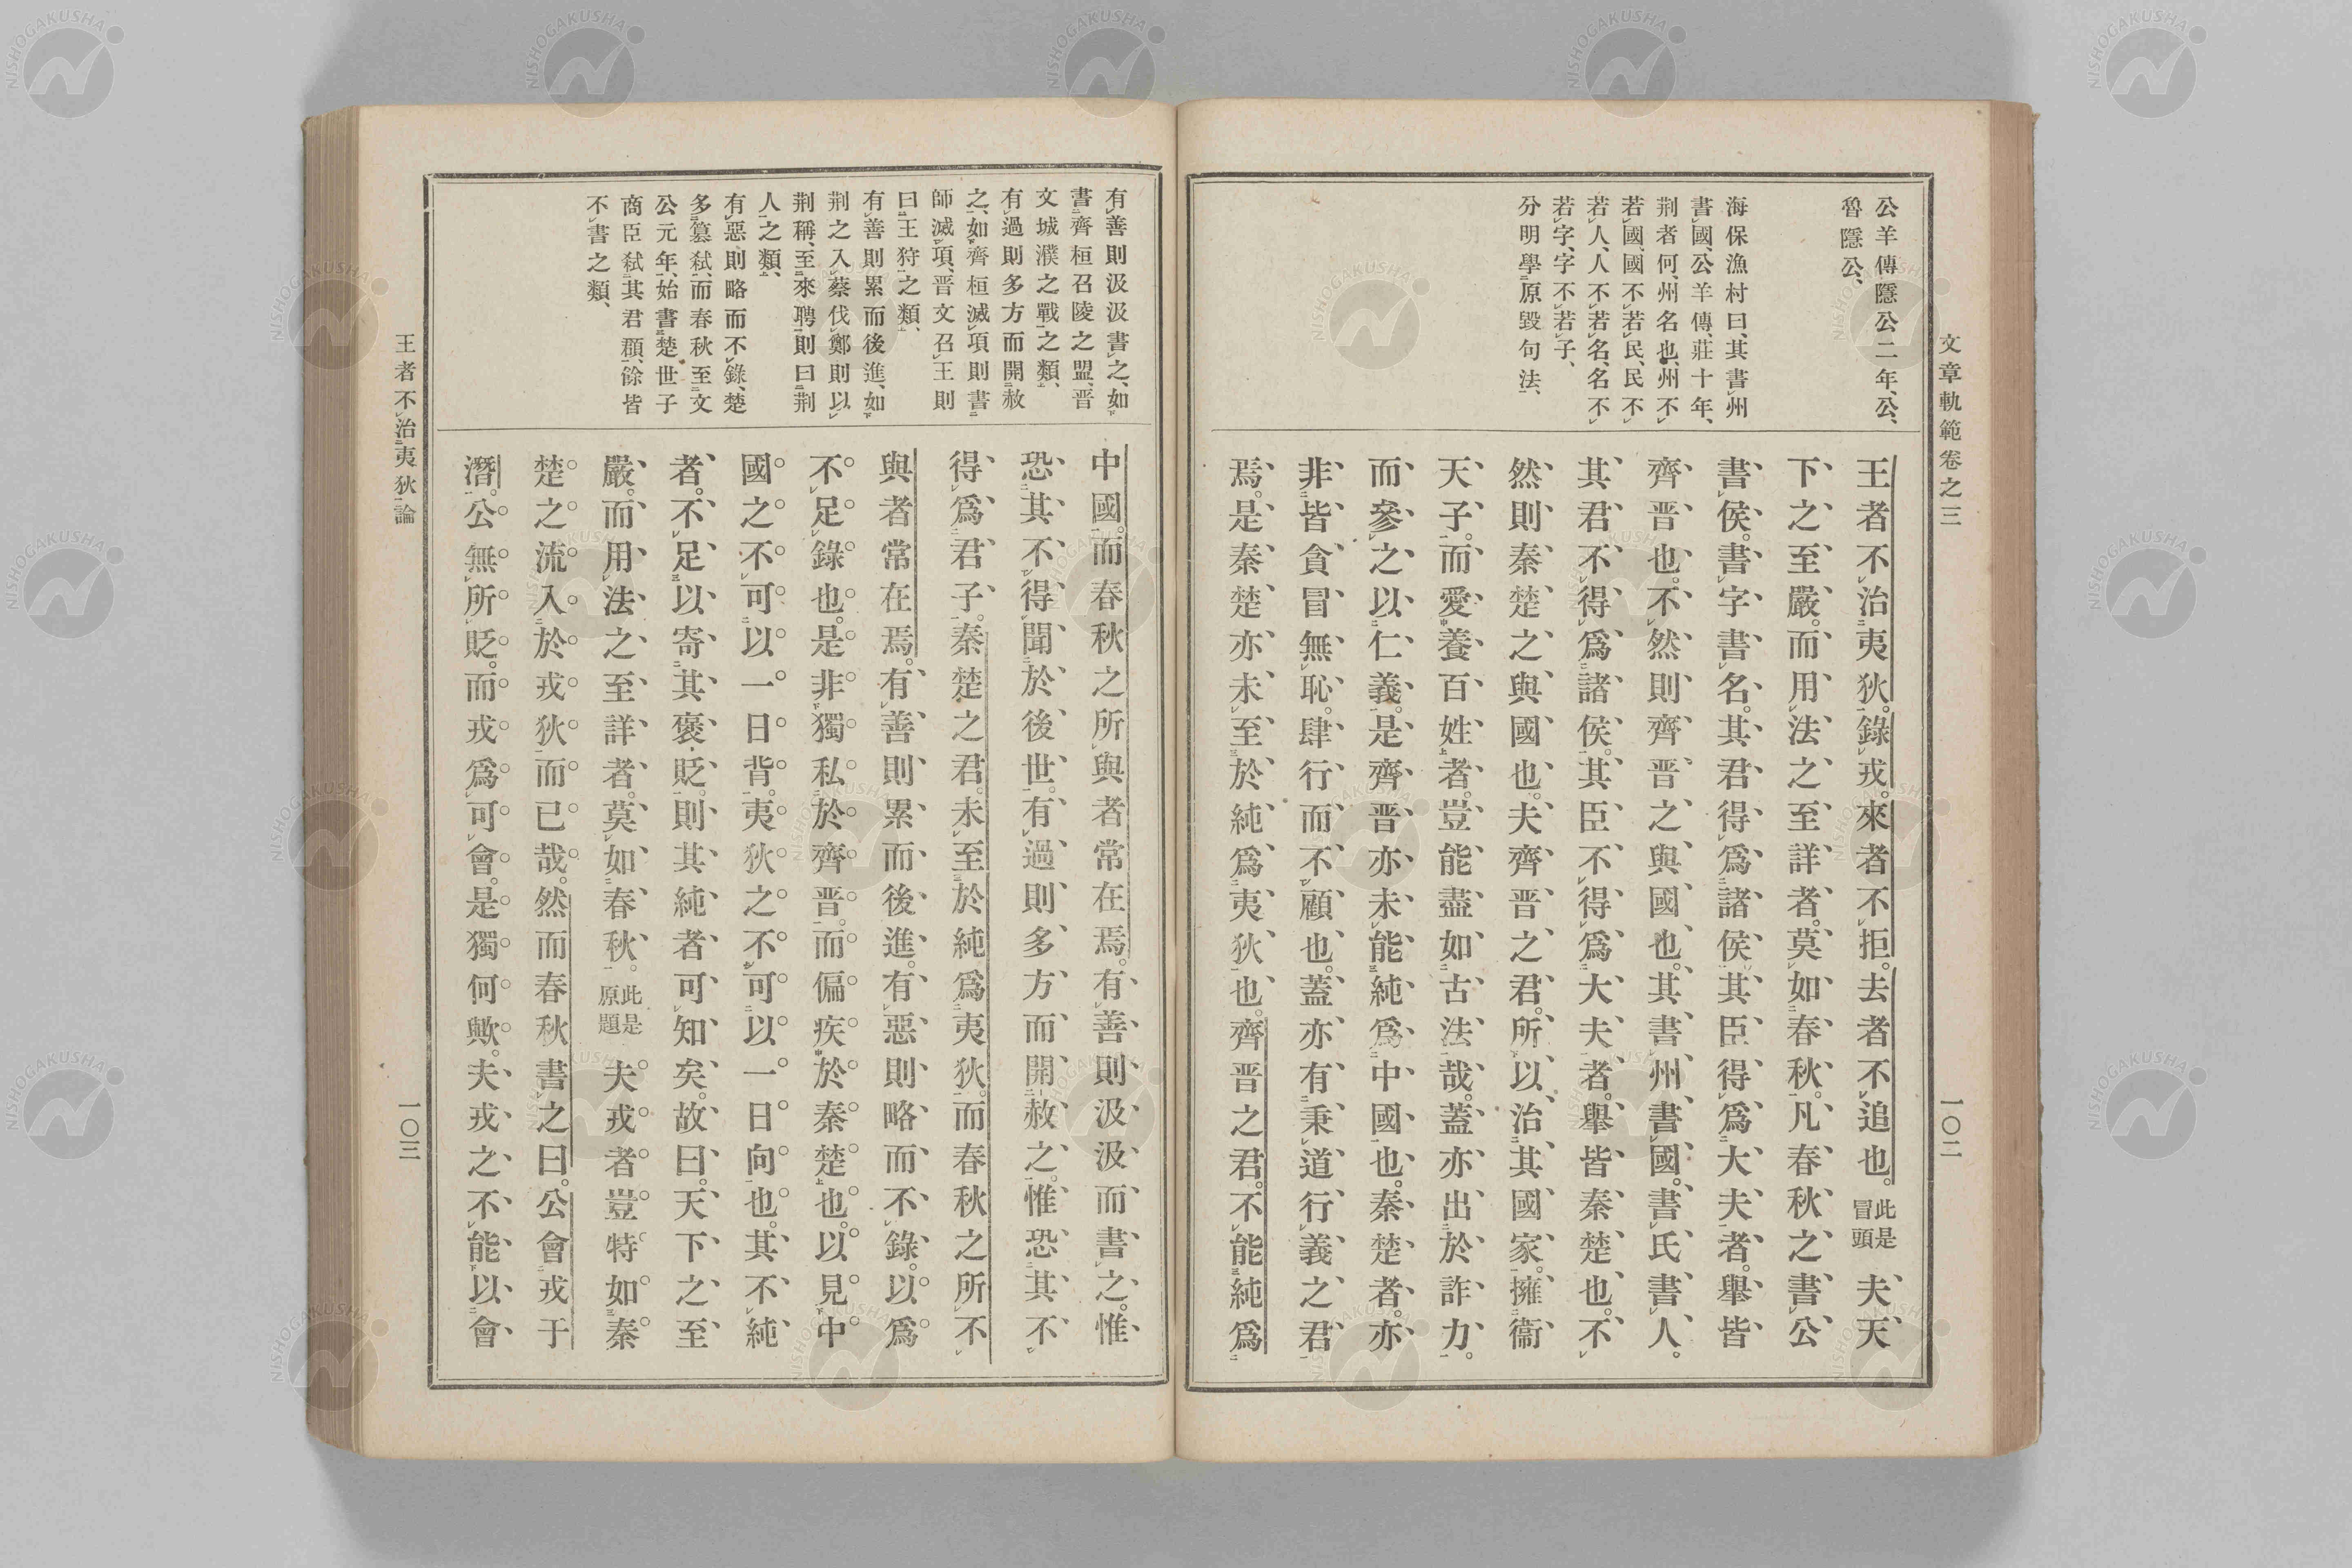 文章軌範卷之三
一〇二
公羊傳隱公二年、公、
魯隱公、
海保漁村曰、其書州
書國、公羊傳、莊十年、
荆者何、州名也、州不
若國、國不若民、民不
若人、人不若名、名不
若字、字不若子、
分明學原毀句法、
王者不治夷狄。錄戎。來者不拒。去者不追也。此是冒頭 夫天
下之至嚴。而用法之至詳者。莫如春秋。凡春秋之書公
書侯。書字書名。其君得爲諸侯、其臣得爲大夫者。舉皆
齊晋也。不然則齊晋之與國也。其書州書國。書氏書人。
其君不得爲諸侯。其臣不得爲大夫者。舉皆秦楚也。不
然則秦楚之與國也。夫齊晋之君。所以治其國家。擁衞
天子。而愛養百姓者。豈能盡如古法哉。蓋亦出於詐力。
而參之以仁義。是齊晋亦未能純爲中國也。秦楚者。亦
非皆貪冒無恥。肆行而不顧也。蓋亦有秉道行義之君
焉。是秦楚亦未至於純爲夷狄也。齊晋之君。不能純爲
有善則汲汲書之、如
書齊桓召陵之盟、晋
文城濮之戰之類、
有過則多方而開赦
之、如齊桓滅項則書
師滅項、晋文召王則
曰王狩之類、
有善則累而後進、如
荆之入蔡伐鄭則以
荆稱、至來聘則曰荆
人之類、
有惡則略而不錄、楚
多簒弑、而春秋至文
公元年、始書楚世子
商臣弑其君頵、餘皆
不書之類、
中國。而春秋之所與者常在焉。有善則汲汲而書之。惟
恐其不得聞於後世。有過則多方而開赦之。惟恐其不
得爲君子。秦楚之君。未至於純爲夷狄。而春秋之所不
與者常在焉。有善則累而後進。有惡則略而不錄。以爲
不足錄也。是非獨私於齊晋。而偏疾於秦楚也。以見中
國之不可以一日背。夷狄之不可以一日向也。其不純
者。不足以寄其褒貶。則其純者可知矣。故曰。天下之至
嚴。而用法之至詳者。莫如春秋。此是原題 夫戎者豈特如秦
楚之流入於戎狄而已哉。然而春秋書之曰。公會戎于
潛。公無所貶。而戎爲可會。是獨何歟。夫戎之不能以會
王者不治夷狄論
一〇三